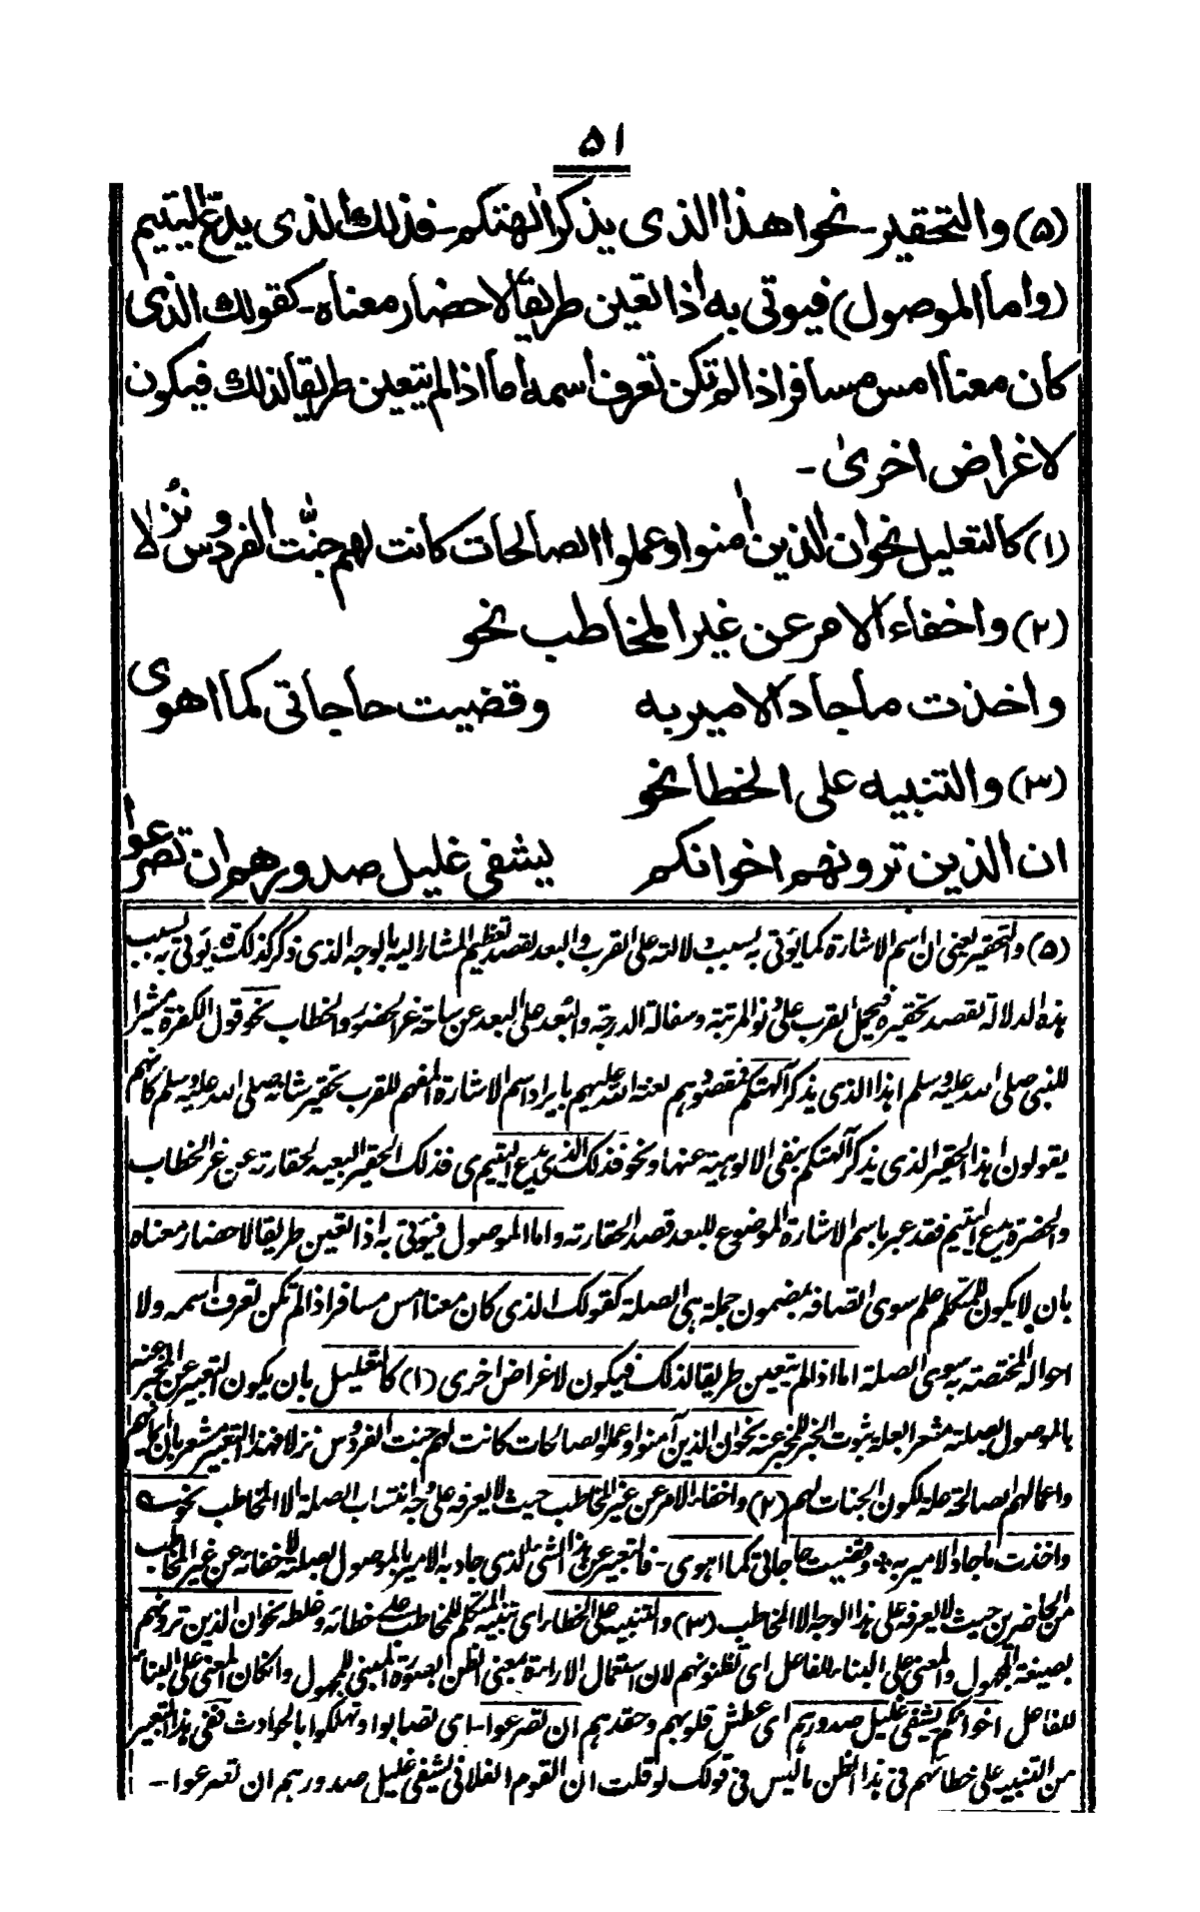 ۵۱
(۵) والتحقير۔ نحو اهذا الذى يذكر اٰلهتكم۔ فذلك الذى يدعّ اليتيم
(واما الموصول) فيوتى به اذا تعين طريقا لاحضار معناه۔ كقولك الذى
كان معنا امس مسافر اذا لم تكن تعرف اسمه اما اذا لم يتعين طريقا لذلك فيكون
لاغراض اخرىٰ۔
(۱) كالتعليل نحو ان الذين اٰمنوا وعملوا الصالحات كانت لهم جنّٰت الفردوس نزلا
(۲) واخفاء الامر عن غير المخاطب نحو
واخذت ما جاد الامير به وقضيت حاجاتى كما اهوى
(۳) والتنبيه على الخطأ نحو
ان الذين ترونهم اخوانكم يشفى غليل صدورهم ان تصرعوا
(۵) والتحقير يعنى ان اسم الاشارة كما يؤتى به بسبب دلالته على القرب والبعد لقصد تعظيم المشار اليه بالوجه الذى ذكر كذلك قد يؤتى به بسبب
هذه الدلالة لقصد تحقيره فيحمل القرب على دنو المرتبة وسفالة الدرجة والبُعد على البعد عن ساحة عز الحضور والخطاب نحو قول الكفرة مشيرا
للنبى صلى الله عليه وسلم اهذا الذى يذكر آلهتكم فمقصودهم لعنة الله عليهم بايراد اسم الاشارة المفهم للقرب تحقير شانه صلى الله عليه وسلم كانهم
يقولون اهذا الحقير الذى يذكر آلهتكم بنفى الالوهية عنها ونحو فذلك الذى يدع اليتيم اى فذلك الحقير البعيد لحقارته عن عز الخطاب
والحضرة يدع اليتيم فقد عبر باسم الاشارة الموضوع للبعد قصد الحقارته واما الموصول فيؤتى به اذا تعين طريقا لاحضار معناه
بان لا يكون للمتكلم علم سوى اتصافه بمضمون جملة هى الصلة كقولك الذى كان معنا امس مسافر اذا لم تكن تعرف اسمه ولا
احواله المختصة به سوى الصلة اما اذا لم يتعين طريقا لذلك فيكون لاغراض اخرى (۱) كالتعليل بان يكون التعبير عن المخبر عنه
بالموصول بصلته مشعر العلية ثبوت الخبر للمخبر عنه نحو ان الذين آمنوا وعملوا الصالحات كانت لهم جنت الفردوس نزلا فهذا التعبير مشعر بان ايمانهم
واعمالهم الصالحة علة لكون الجنات لهم (۲) واخفاء الامر عن غير المخاطب حيث لا يعرفه على وجه انتساب الصلة الا المخاطب نحو
واخذت ما جاد الامير به وقضيت حاجاتى كما اهوى۔ فالتعبير عن هذا الشئ الذى جاد به الامير بالموصول بصلته لاخفائه عن غير المخاطب
من الحاضرين حيث لا يعرفه على هذا الوجه الا المخاطب (۳) والتنبيه على الخطاء اى تنبيه المتكلم للمخاطب على خطائه وغلطه نحو ان الذين ترونهم
بصيغة المجهول والمعنى على البناء للفاعل اى تظنونهم لان استعمال الاراءة بمعنى الظن بصورة المبنى للمجهول وان كان المعنى على البناء
للفاعل اخوانكم يشفى غليل صدورهم اى عطش قلوبهم وحقدهم ان تصرعوا۔ اى تصابوا وتهلكوا بالحوادث ففى هذا التعبير
من التنبيه على خطائهم فى هذا الظن ما ليس فى قولك لو قلت ان القوم الفلانى يشفى غليل صدورهم ان تصرعوا۔